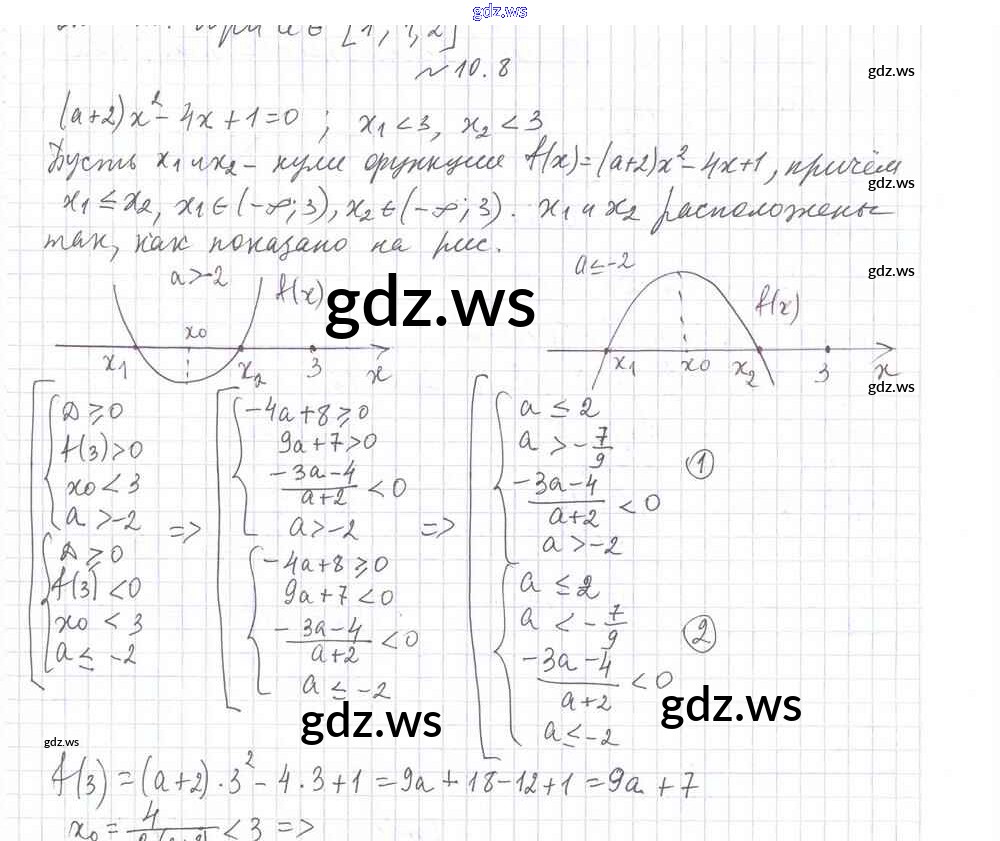 gdz.ws
при a ∈ [1; 1,2]
№ 10.8
gdz.ws
(a+2)x² - 4x + 1 = 0 ; x₁ < 3, x₂ < 3
Пусть x₁ и x₂ - нули функции f(x) = (a+2)x² - 4x + 1, причём
gdz.ws
x₁ ≤ x₂, x₁ ∈ (-∞; 3), x₂ ∈ (-∞; 3). x₁ и x₂ расположены
так, как показано на рис.
gdz.ws
a > -2 f(x) x₀ x₁ x₂ 3 x
gdz.ws
a ≤ -2 f(x) x₁ x₀ x₂ 3 x
gdz.ws
D ≥ 0
f(3) > 0
x₀ < 3
a > -2
D ≥ 0
f(3) < 0
x₀ < 3
a ≤ -2
=>
-4a + 8 ≥ 0
9a + 7 > 0
(-3a - 4)/(a + 2) < 0
a > -2
-4a + 8 ≥ 0
9a + 7 < 0
(-3a - 4)/(a + 2) < 0
a ≤ -2
=>
a ≤ 2
a > -7/9
(-3a - 4)/(a + 2) < 0
a > -2
①
a ≤ 2
a < -7/9
(-3a - 4)/(a + 2) < 0
a ≤ -2
②
gdz.ws
gdz.ws
gdz.ws
f(3) = (a+2)·3² - 4·3 + 1 = 9a + 18 - 12 + 1 = 9a + 7
x₀ = 4/2(a+2) < 3 =>